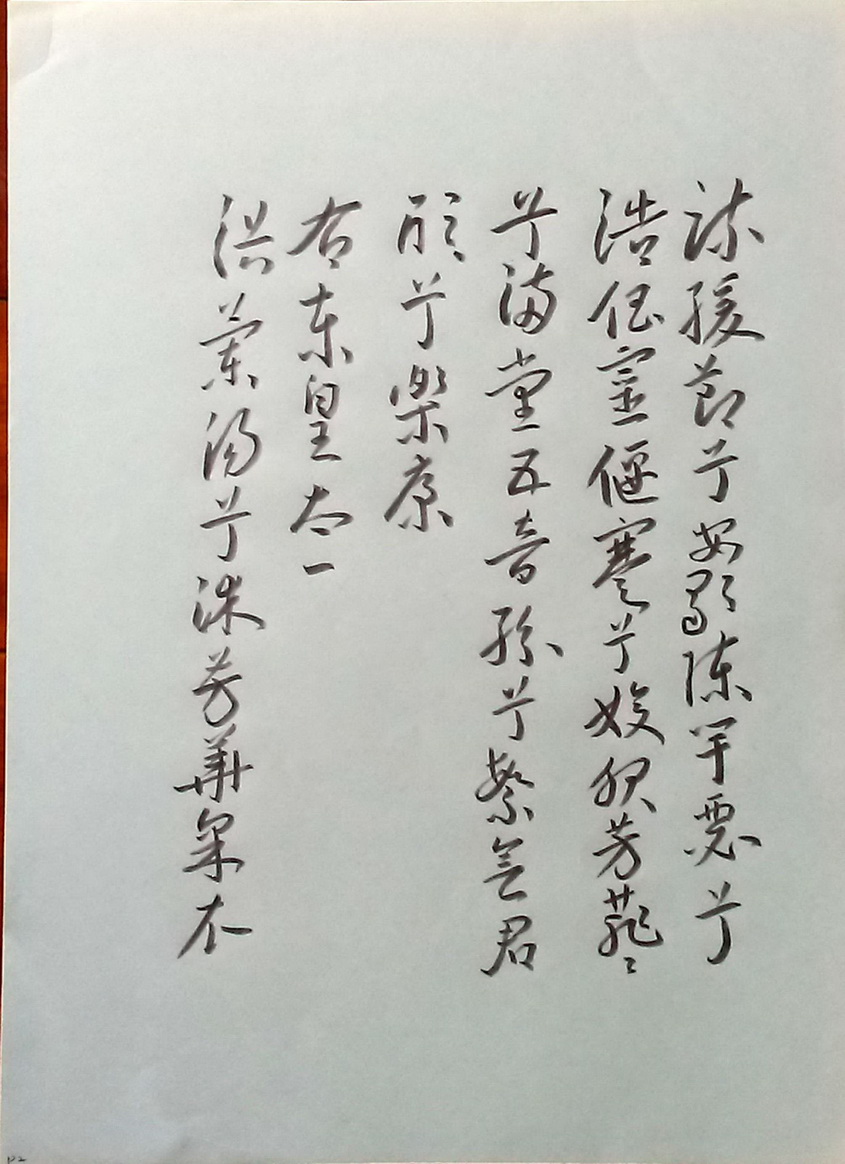 疏緩節兮安歌陳竽瑟兮
浩倡靈偃蹇兮姣服芳菲〻
兮滿堂五音紛兮繁會君
欣〻兮樂康
右東皇太一
浴蘭湯兮沐芳華采衣